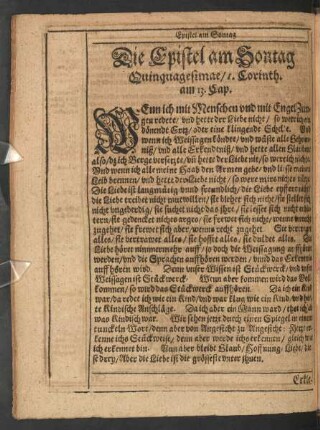 Epistel am Sontag
Die Epistel am Sontag
Quinquagesimae/ 1. Corinth.
am 13. Cap.
WEnn ich mit Menschen vnd mit Engel Zun-
gen redete/ vnd hette der Liebe nicht/ so were ich ein
dönend Ertz/ oder eine klingende Schelle. Vnd
wenn ich Weissagen köndte/ vnd wüste alle Geheim-
niß/ vnd alle Erkendtniß/ vnd hette allen Glauben
also/ dz ich Berge versetzte/ vñ hette der Liebe nit/ so were ich nichts.
Vnd wenn ich alle meine Haab den Armen gebe/ vnd ließ meinen
Leib brennen/ vnd hette der Liebe nicht/ so were mirs nichts nütz.
Die Liebe ist langmütig vnnd freundlich/ die Liebe eyffert nicht/
die Liebe treibet nicht mutwillen/ sie blehet sich nicht/ sie stellet sich
nicht vngeberdig/ sie suchet nicht das ihre/ sie lesset sich nicht erbit-
tern/ sie gedencket nichts arges/ sie frewet sich nicht/ wenns vnrecht
zugehet/ sie frewet sich aber/ wenns recht zugehet. Sie vertreget
alles/ sie vertrawet alles/ sie hoffet alles/ sie duldet alles. Die
Liebe höret nimmermehr auff/ so doch die Weissagung auffhören
werden/ vnd die Sprachen auffhören werden/ vnd das Erkentniß
auffhören wird. Denn vnser Wissen ist Stückwerck/ vnd vnser
Weissagen ist Stückwerck. Wenn aber kommen wird das Vol-
kommen/ so wird das Stückwerck auffhören. Da ich ein Kind
war/ da redet ich wie ein Kind/ vnd war klug wie ein Kind/ vnd het-
te Kindische Anschläge. Da ich aber ein Mann ward/ thet ich ab
was Kindisch war. Wir sehen jetzt durch einen Spiegel in einem
tunckeln Wort/ denn aber von Angesicht zu Angesicht. Jetzt er-
kenne ichs Stückweise/ denn aber werde ichs erkennen/ gleich wie
ich erkennet bin. Nun aber bleibt Glaub/ Hoffnung/ Liebe/ die-
se drey/ Aber die Liebe ist die grösseste vnter ihnen.
Erkle-